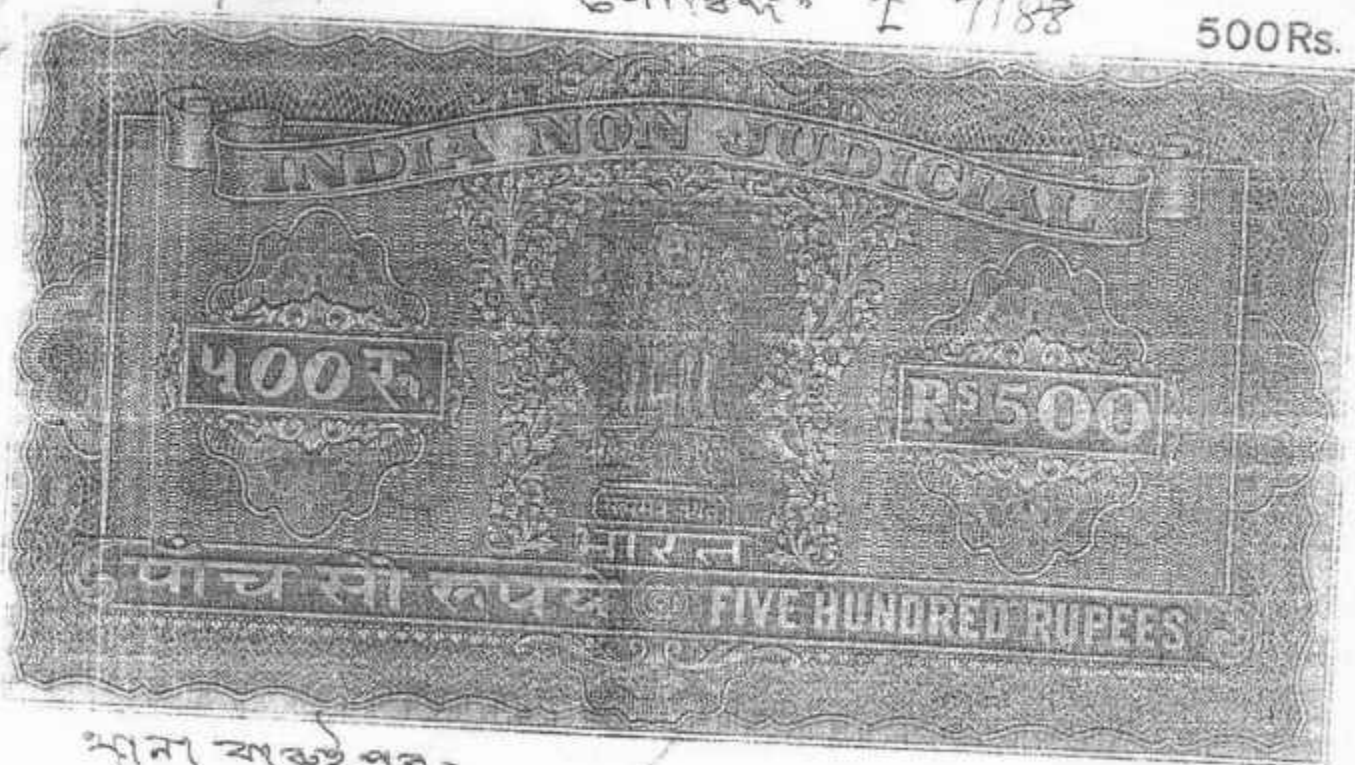 I 7188
500Rs.
INDIA NON JUDICIAL
५00 रु.
Rs 500
सत्यमेव जयते
भारत
पांच सौ रूपये
FIVE HUNDRED RUPEES
থানা বারুইপুর